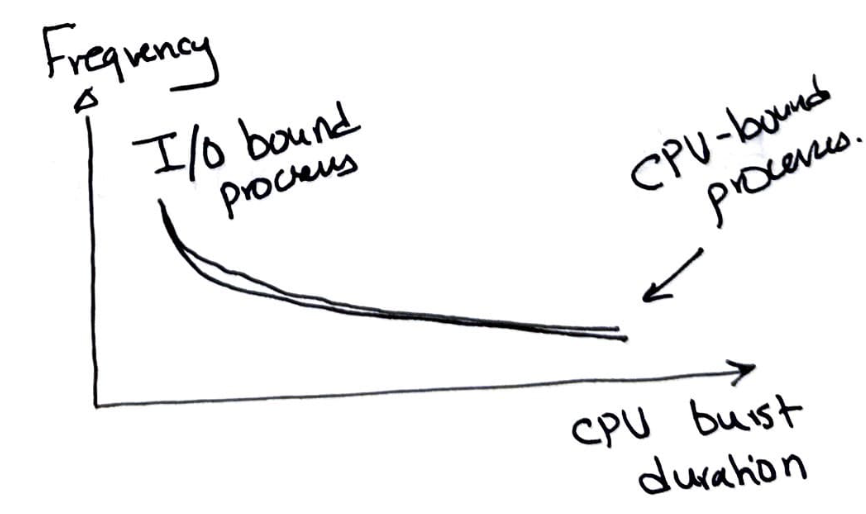 Frequency
I/O bound
process
CPU-bound
processes.
CPU burst
duration